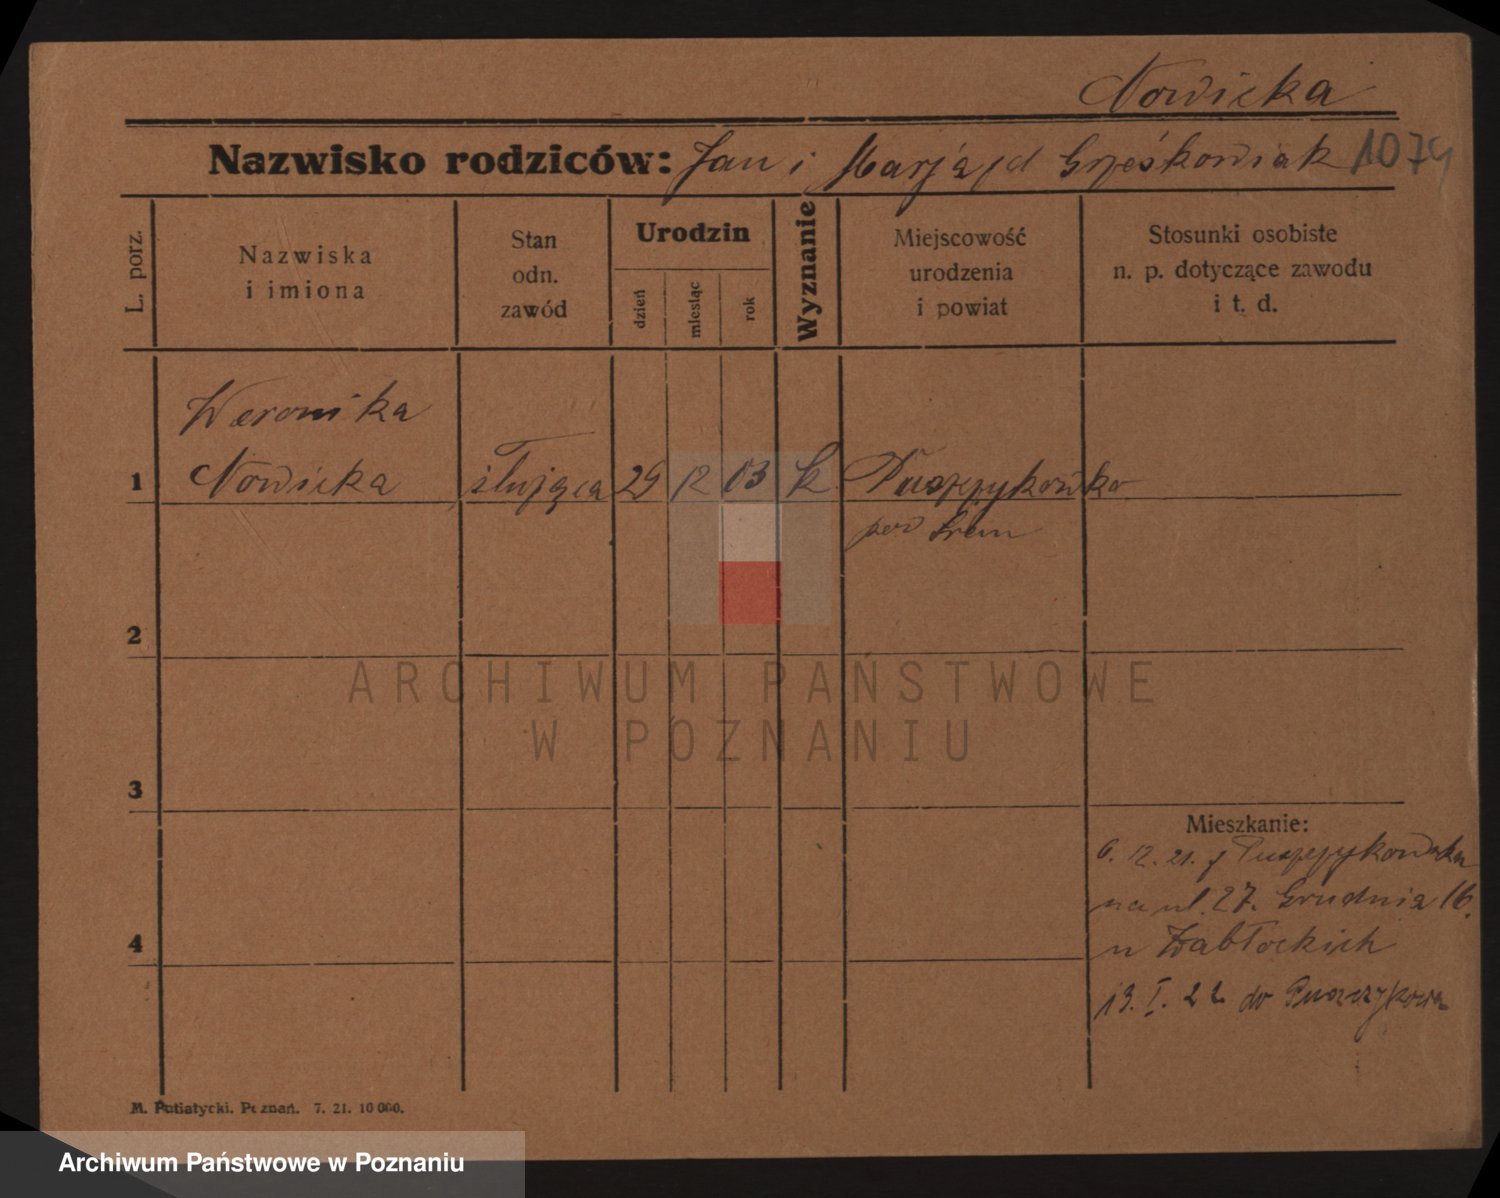 Nowicka
Nazwisko rodziców: Jan i Marja d Grześkowiak 1079
L. porz.
Nazwiska i imiona
Stan odn. zawód
Urodzin
dzień
miesiąc
rok
Wyznanie
Miejscowość urodzenia i powiat
Stosunki osobiste n. p. dotyczące zawodu i t. d.
Weronika
1 Nowicka służąca 29 12 03 k Puszczykówko
pow Śrem
2
3
4
Mieszkanie:
6. 12. 21. z Puszczykówka
na ul. 27. Grudnia 16.
u Zabłockich
13. I. 22 do Puszczykowa
M. Putiatycki. Poznań. 7. 21. 10 000.
ARCHIWUM PAŃSTWOWE
W POZNANIU
Archiwum Państwowe w Poznaniu